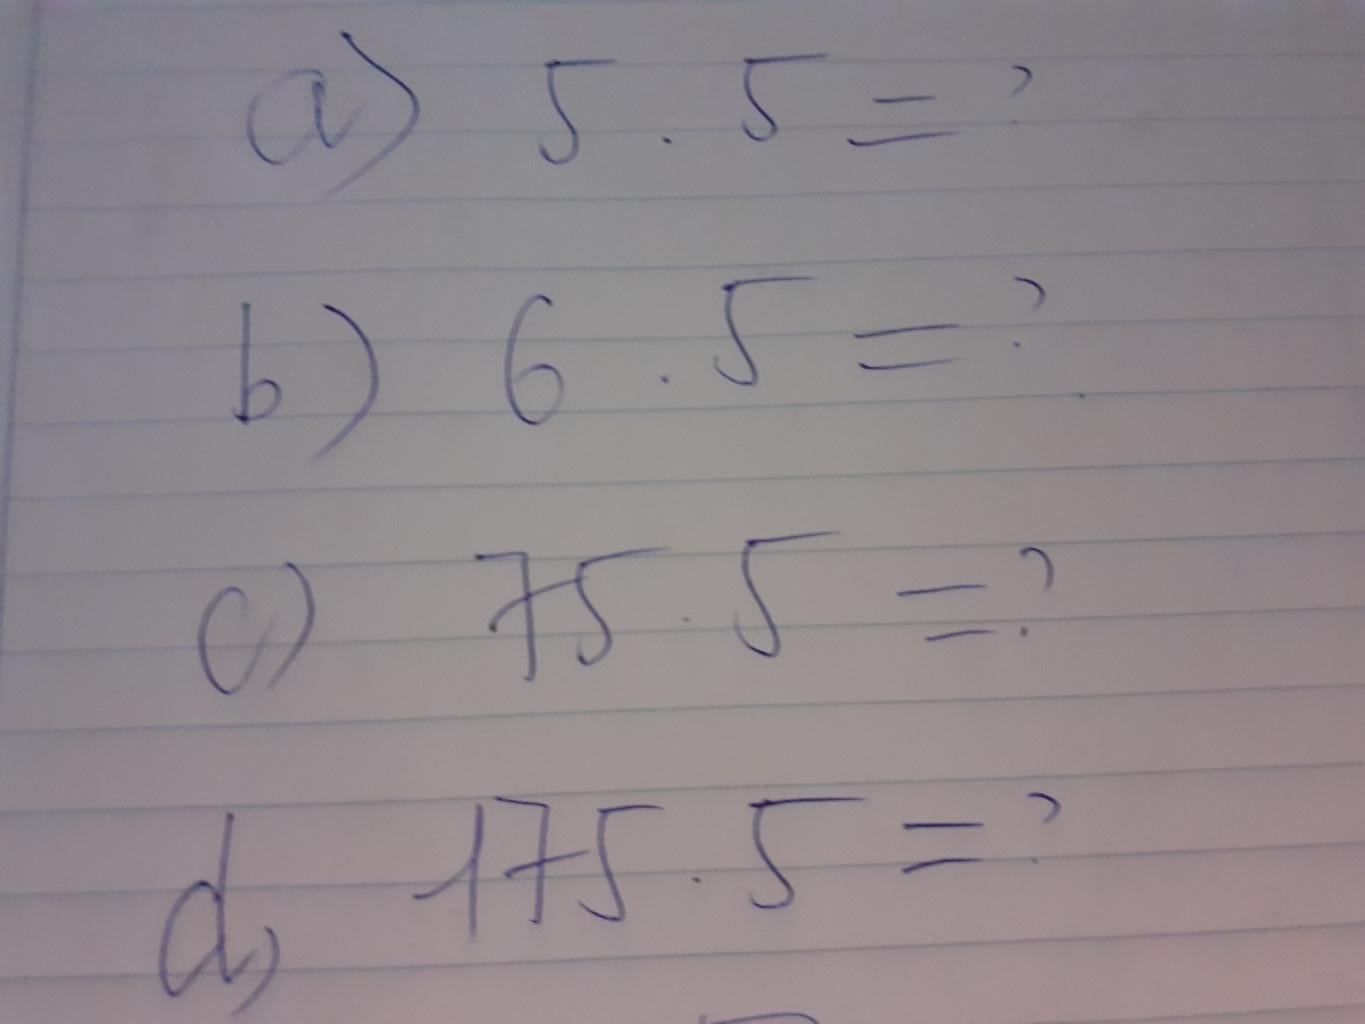 a) 5 . 5 = ?
b) 6 . 5 = ?
c) 75 . 5 = ?
d) 175 . 5 = ?